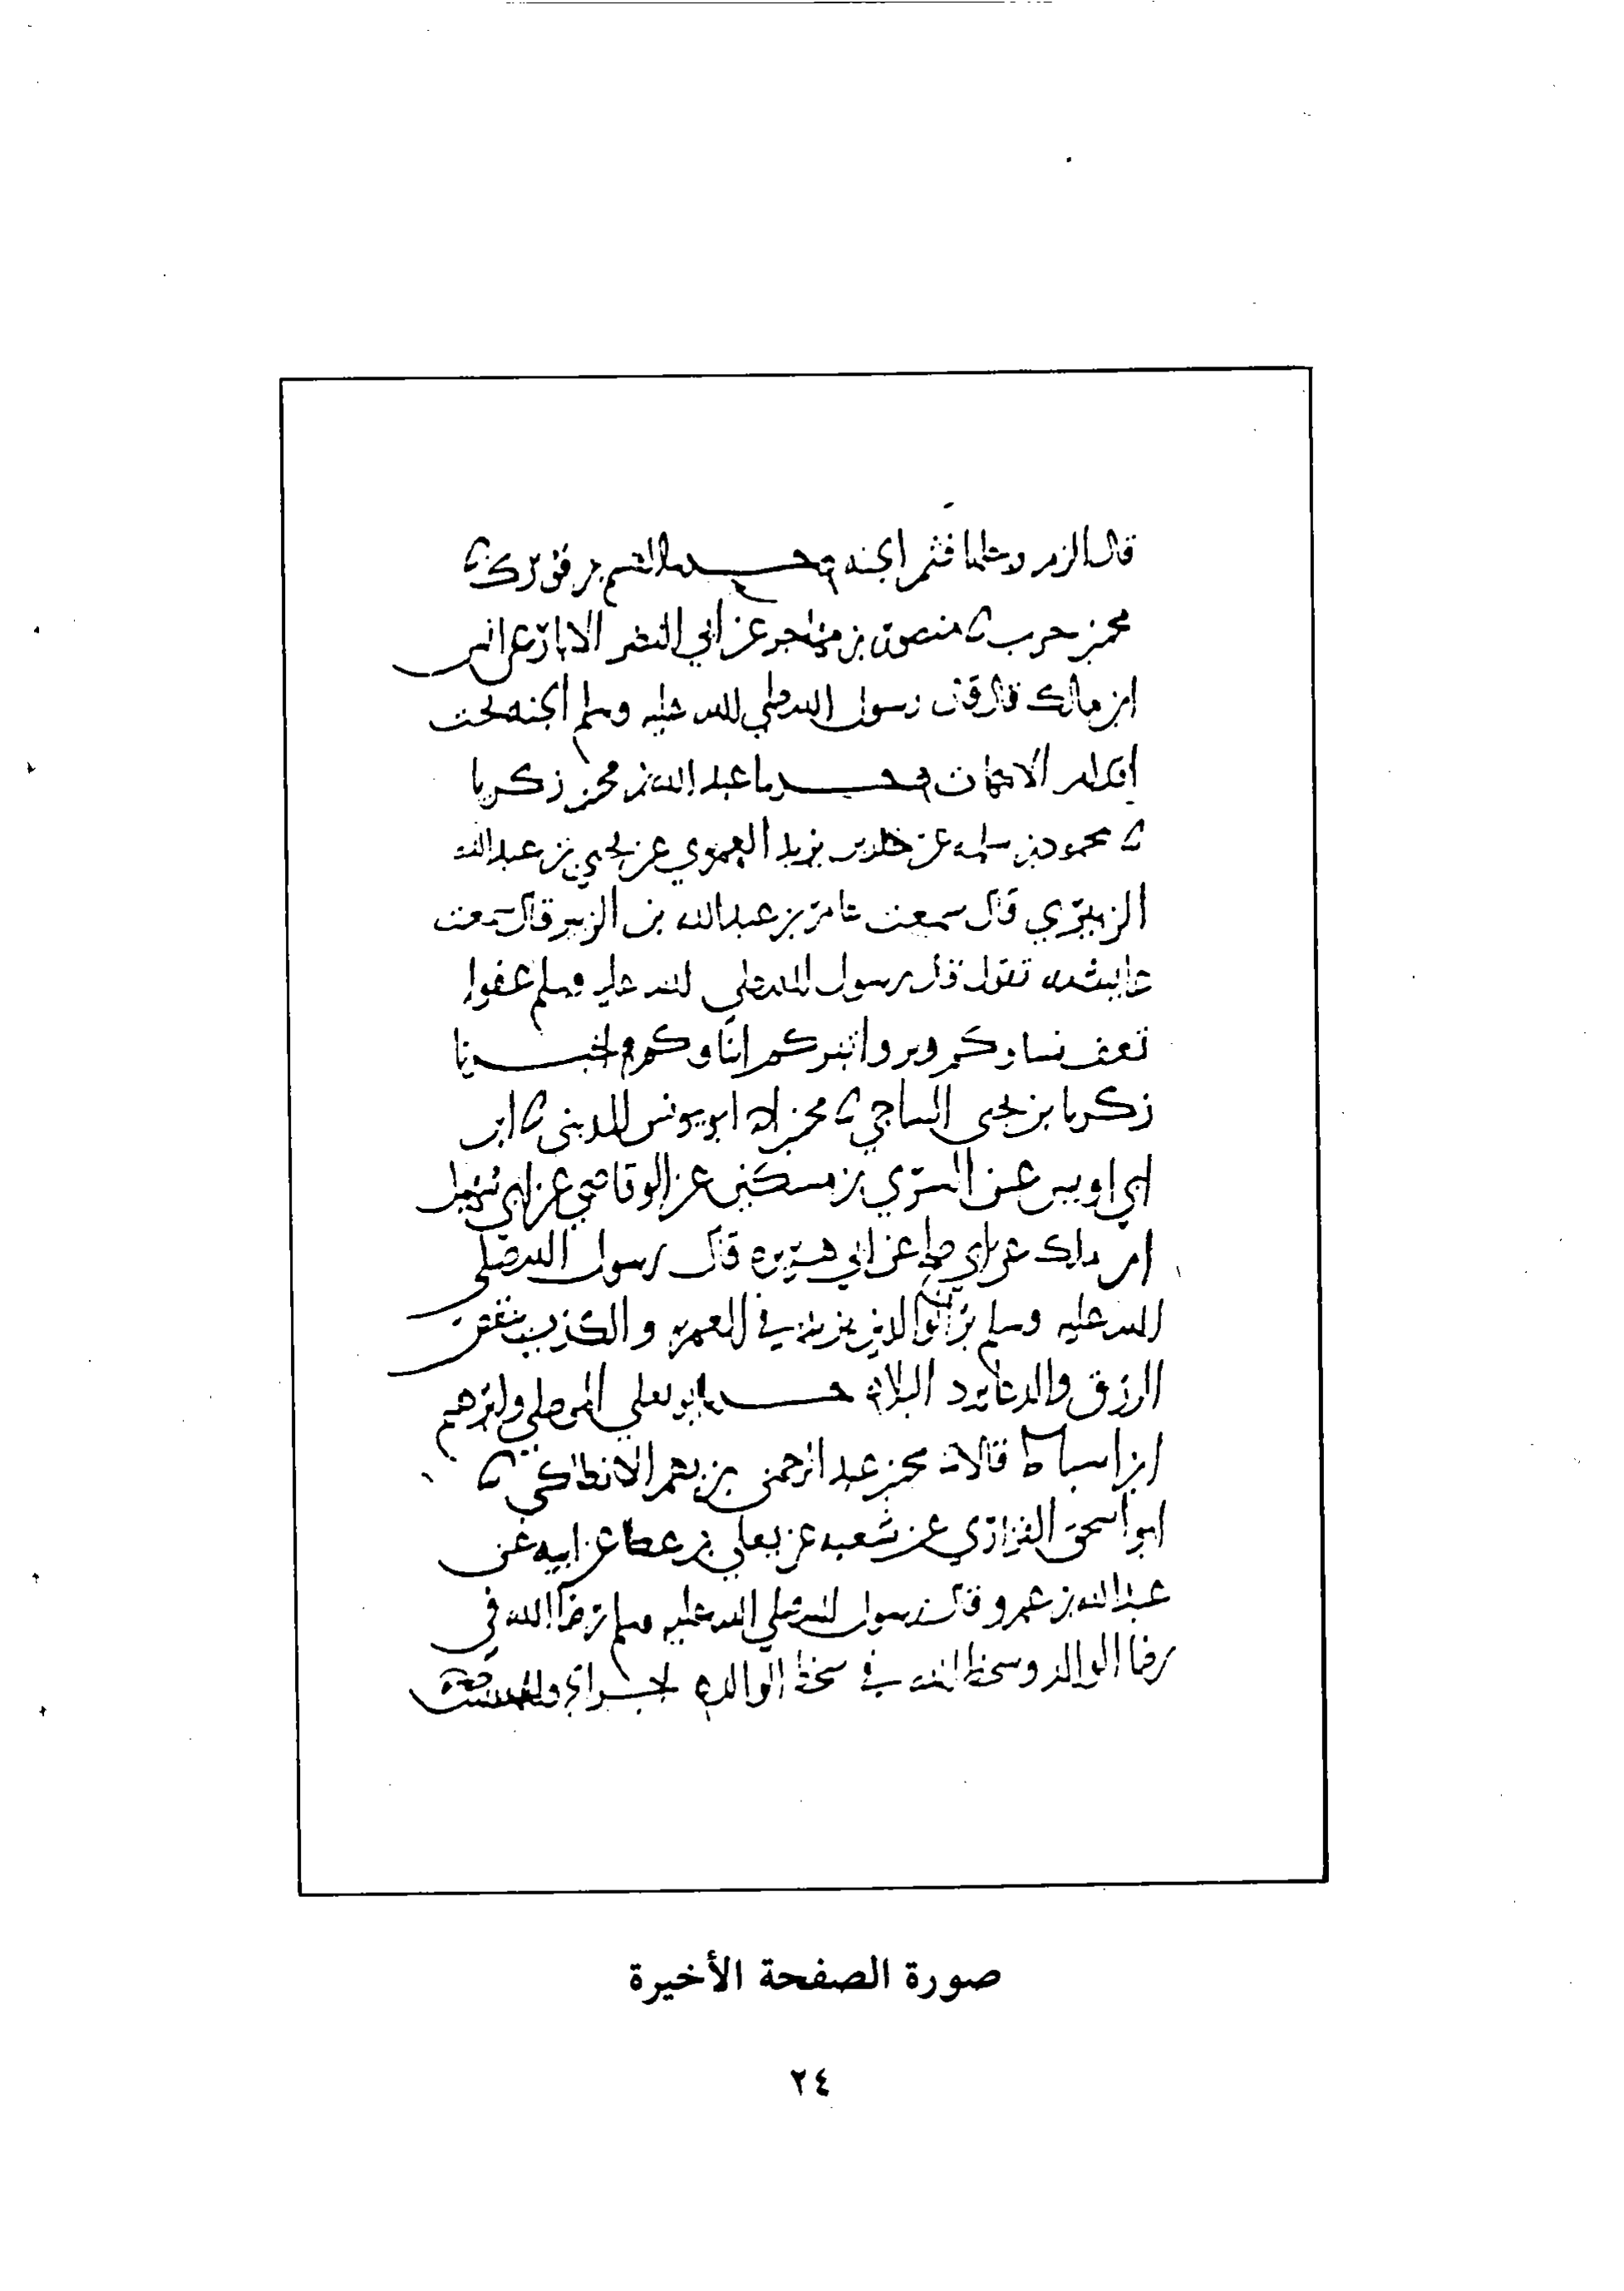 قال الزم رجلها فثم الجنه حدثنا القسم بن فورك نا
محمد بن حرب نا منصور بن مهاجر عن ابي النضر الابار عن انس
ابن مالك قال قال رسول الله صلى الله عليه وسلم الجنه تحت
اقدام الامهات حدثنا عبد الله بن محمد بن زكريا
نا محمود بن سلمه عن خلد بن يزيد العمري عن يحيى بن عبد الله
الزبيري قال سمعت عامر بن عبد الله بن الزبير قال سمعت
عايشه تقول قال رسول الله صلى الله عليه وسلم عفوا
تعف نساوكم وبروا تبركم ابناوكم اخبرنا
زكريا بن يحيى الساجي نا محمد ابو يونس المديني نا ابن
ابي اويس عن السري بن مسكين عن الوقاصي عن ابي سهيل
ابن مالك عن ابي صالح عن ابي هريره قال رسول الله صلى
الله عليه وسلم بر الوالدين يزيد في العمر والكذب ينقص
الرزق والدعا يرد البلا حدثنا ابو يعلى الموصلي وابرهيم
ابن اسباط قالا نا محمد بن عبد الرحمن بن سهم الانطاكي نا
ابو اسحق الفزاري عن شعبه عن يعلى بن عطا عن ابيه عن
عبد الله بن عمرو قال رسول الله صلى الله عليه وسلم رضا الله في
رضا الوالد وسخط الله في سخط الوالد
صورة الصفحة الأخيرة
٢٤